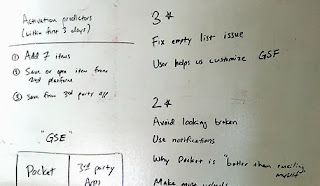 Activation predictors
(within first 3 days)
① Add 7 items
② Save or open item from
2nd platform
③ Save from 3rd party app
"GSE"
Pocket
3rd party
Apps
3*
Fix empty list issue
User helps us customize GSF
2*
Avoid looking broken
Use notifications
Why Pocket is "better than emailing
myself"
Make more